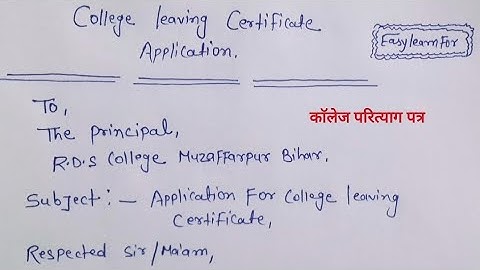 College leaving Certificate
Application.
EasylearnFor
To,
The principal,
कॉलेज परित्याग पत्र
R.D.S College Muzaffarpur Bihar.
Subject:- Application For College leaving
Certificate,
Respected Sir/Ma'am,